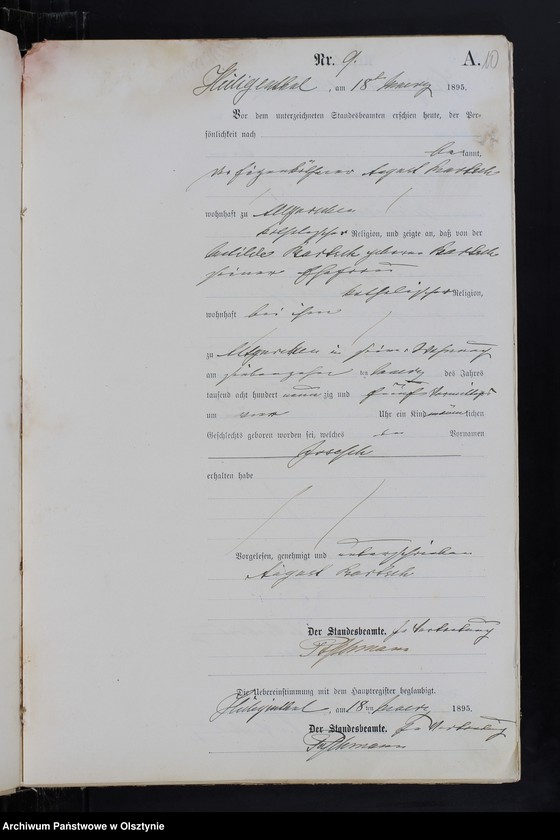 Nr. 9.
A. 10
Heiligenthal, am 18t 1895.
Vor dem unterzeichneten Standesbeamten erschien heute, der Persönlichkeit nach
bekannt,
der August Bartsch
wohnhaft zu
katholischer Religion, und zeigte an, daß von der
Bartsch geborene Bartsch
seiner Ehefrau
katholischer Religion,
wohnhaft bei ihm
zu in seiner Wohnung
am siebenzehn ten des Jahres
tausend acht hundert neunzig und fünf Vormittags
um vier Uhr ein Kind männlichen
Geschlechts geboren worden sei, welches den Vornamen
Joseph
erhalten habe
Vorgelesen, genehmigt und unterschrieben
August Bartsch
Der Standesbeamte. In Vertretung
Die Uebereinstimmung mit dem Hauptregister beglaubigt.
Heiligenthal, am 18 ten 1895.
Der Standesbeamte. In Vertretung
Archiwum Państwowe w Olsztynie